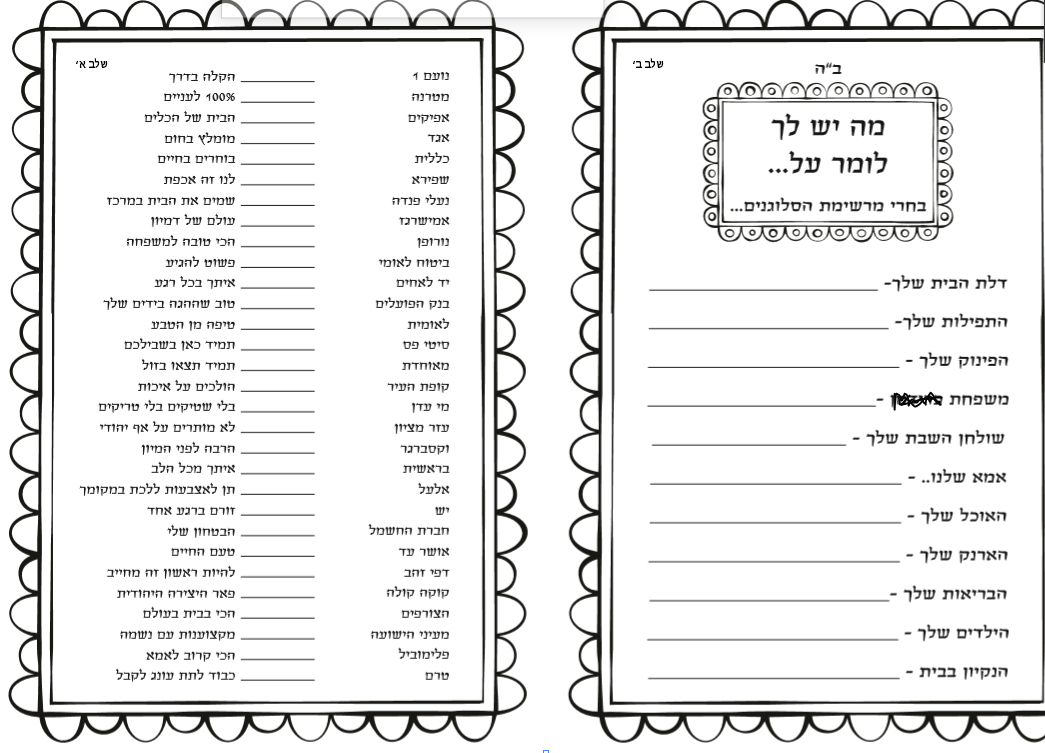 שלב ב'
ב"ה
מה יש לך
לומר על...
בחרי מרשימת הסלוגנים...
דלת הבית שלך- ____________
התפילות שלך- ____________
הפינוק שלך - ____________
משפחת - ____________
שולחן השבת שלך - ____________
אמא שלנו.. - ____________
האוכל שלך - ____________
הארנק שלך - ____________
הבריאות שלך - ____________
הילדים שלך - ____________
הנקיון בבית - ____________
שלב א'
נועם 1 ________ הקלה בדרך
מטרנה ________ 100% לעניים
אפיקים ________ הבית של הכלים
אגד ________ מומלץ בחום
כללית ________ בוחרים בחיים
שפירא ________ לנו זה אכפת
נעלי פנדה ________ שמים את הבית במרכז
אמישרגז ________ עולם של דמיון
נורופן ________ הכי טובה למשפחה
ביטוח לאומי ________ פשוט להגיע
יד לאחים ________ איתך בכל רגע
בנק הפועלים ________ טוב שההגה בידים שלך
לאומית ________ טיפה מן הטבע
סיטי פס ________ תמיד כאן בשבילכם
מאוחדת ________ תמיד תצאו בזול
קופת העיר ________ הולכים על איכות
מי עדן ________ בלי שטיקים בלי טריקים
עזר מציון ________ לא מותרים על אף יהודי
וקסברגר ________ הרבה לפני המיון
בראשית ________ איתך מכל הלב
אלעל ________ תן לאצבעות ללכת במקומך
יש ________ זורם ברגע אחד
חברת החשמל ________ הבטחון שלי
אושר עד ________ טעם החיים
דפי זהב ________ להיות ראשון זה מחייב
קוקה קולה ________ פאר היצירה היהודית
הצורפים ________ הכי בבית בעולם
מעיני הישועה ________ מקצוענות עם נשמה
פלימוביל ________ הכי קרוב לאמא
טרם ________ כבוד לתת עונג לקבל